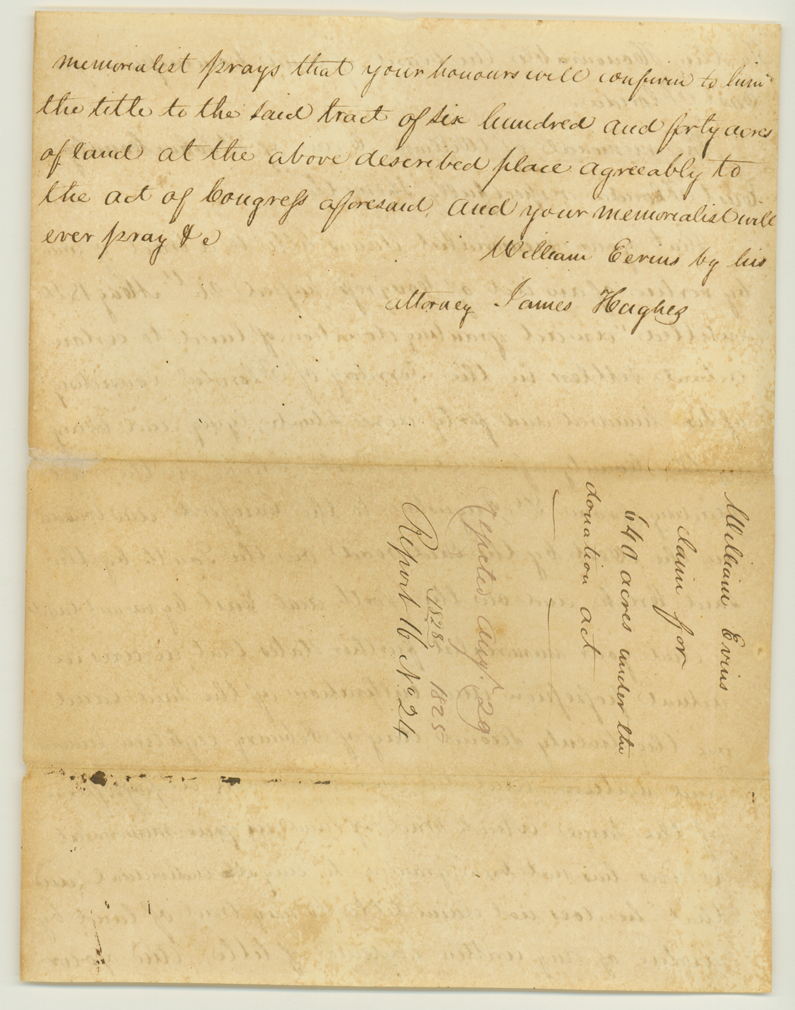 memorialist prays that your honours will confirm to him
the title to the said tract of six hundred and forty acres
of land at the above described place agreeably to
the act of Congress aforesaid, and your memorialist will
ever pray &c
William Eevins by his
attorney James Hughes
William Evins
claim for
640 acres under the
donation act
Rejected Augt. 29
1828 1825
Report 16 No 24